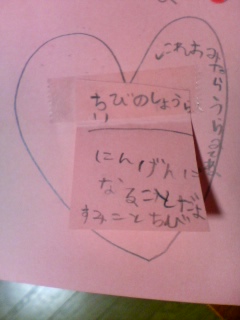 ちびのしょうらい
にんげんに
なることだよ
すみことちび
これおみたらうらをみて